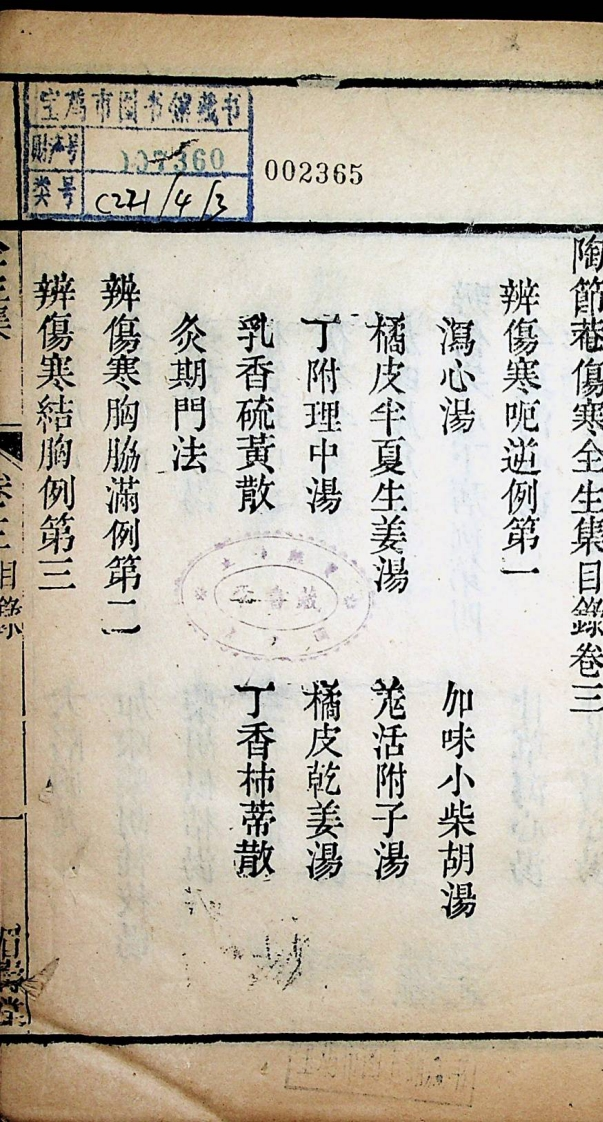 宝鸡市图书馆藏书
财产号 107360
类号 C221/4/3
002365
陶節菴傷寒全生集目錄卷三
辨傷寒呃逆例第一
瀉心湯
加味小柴胡湯
橘皮半夏生姜湯
羗活附子湯
丁附理中湯
橘皮乾姜湯
乳香硫黃散
丁香柿蒂散
灸期門法
辨傷寒胸脇滿例第二
辨傷寒結胸例第三
全生集
卷三目錄
一
眉壽堂